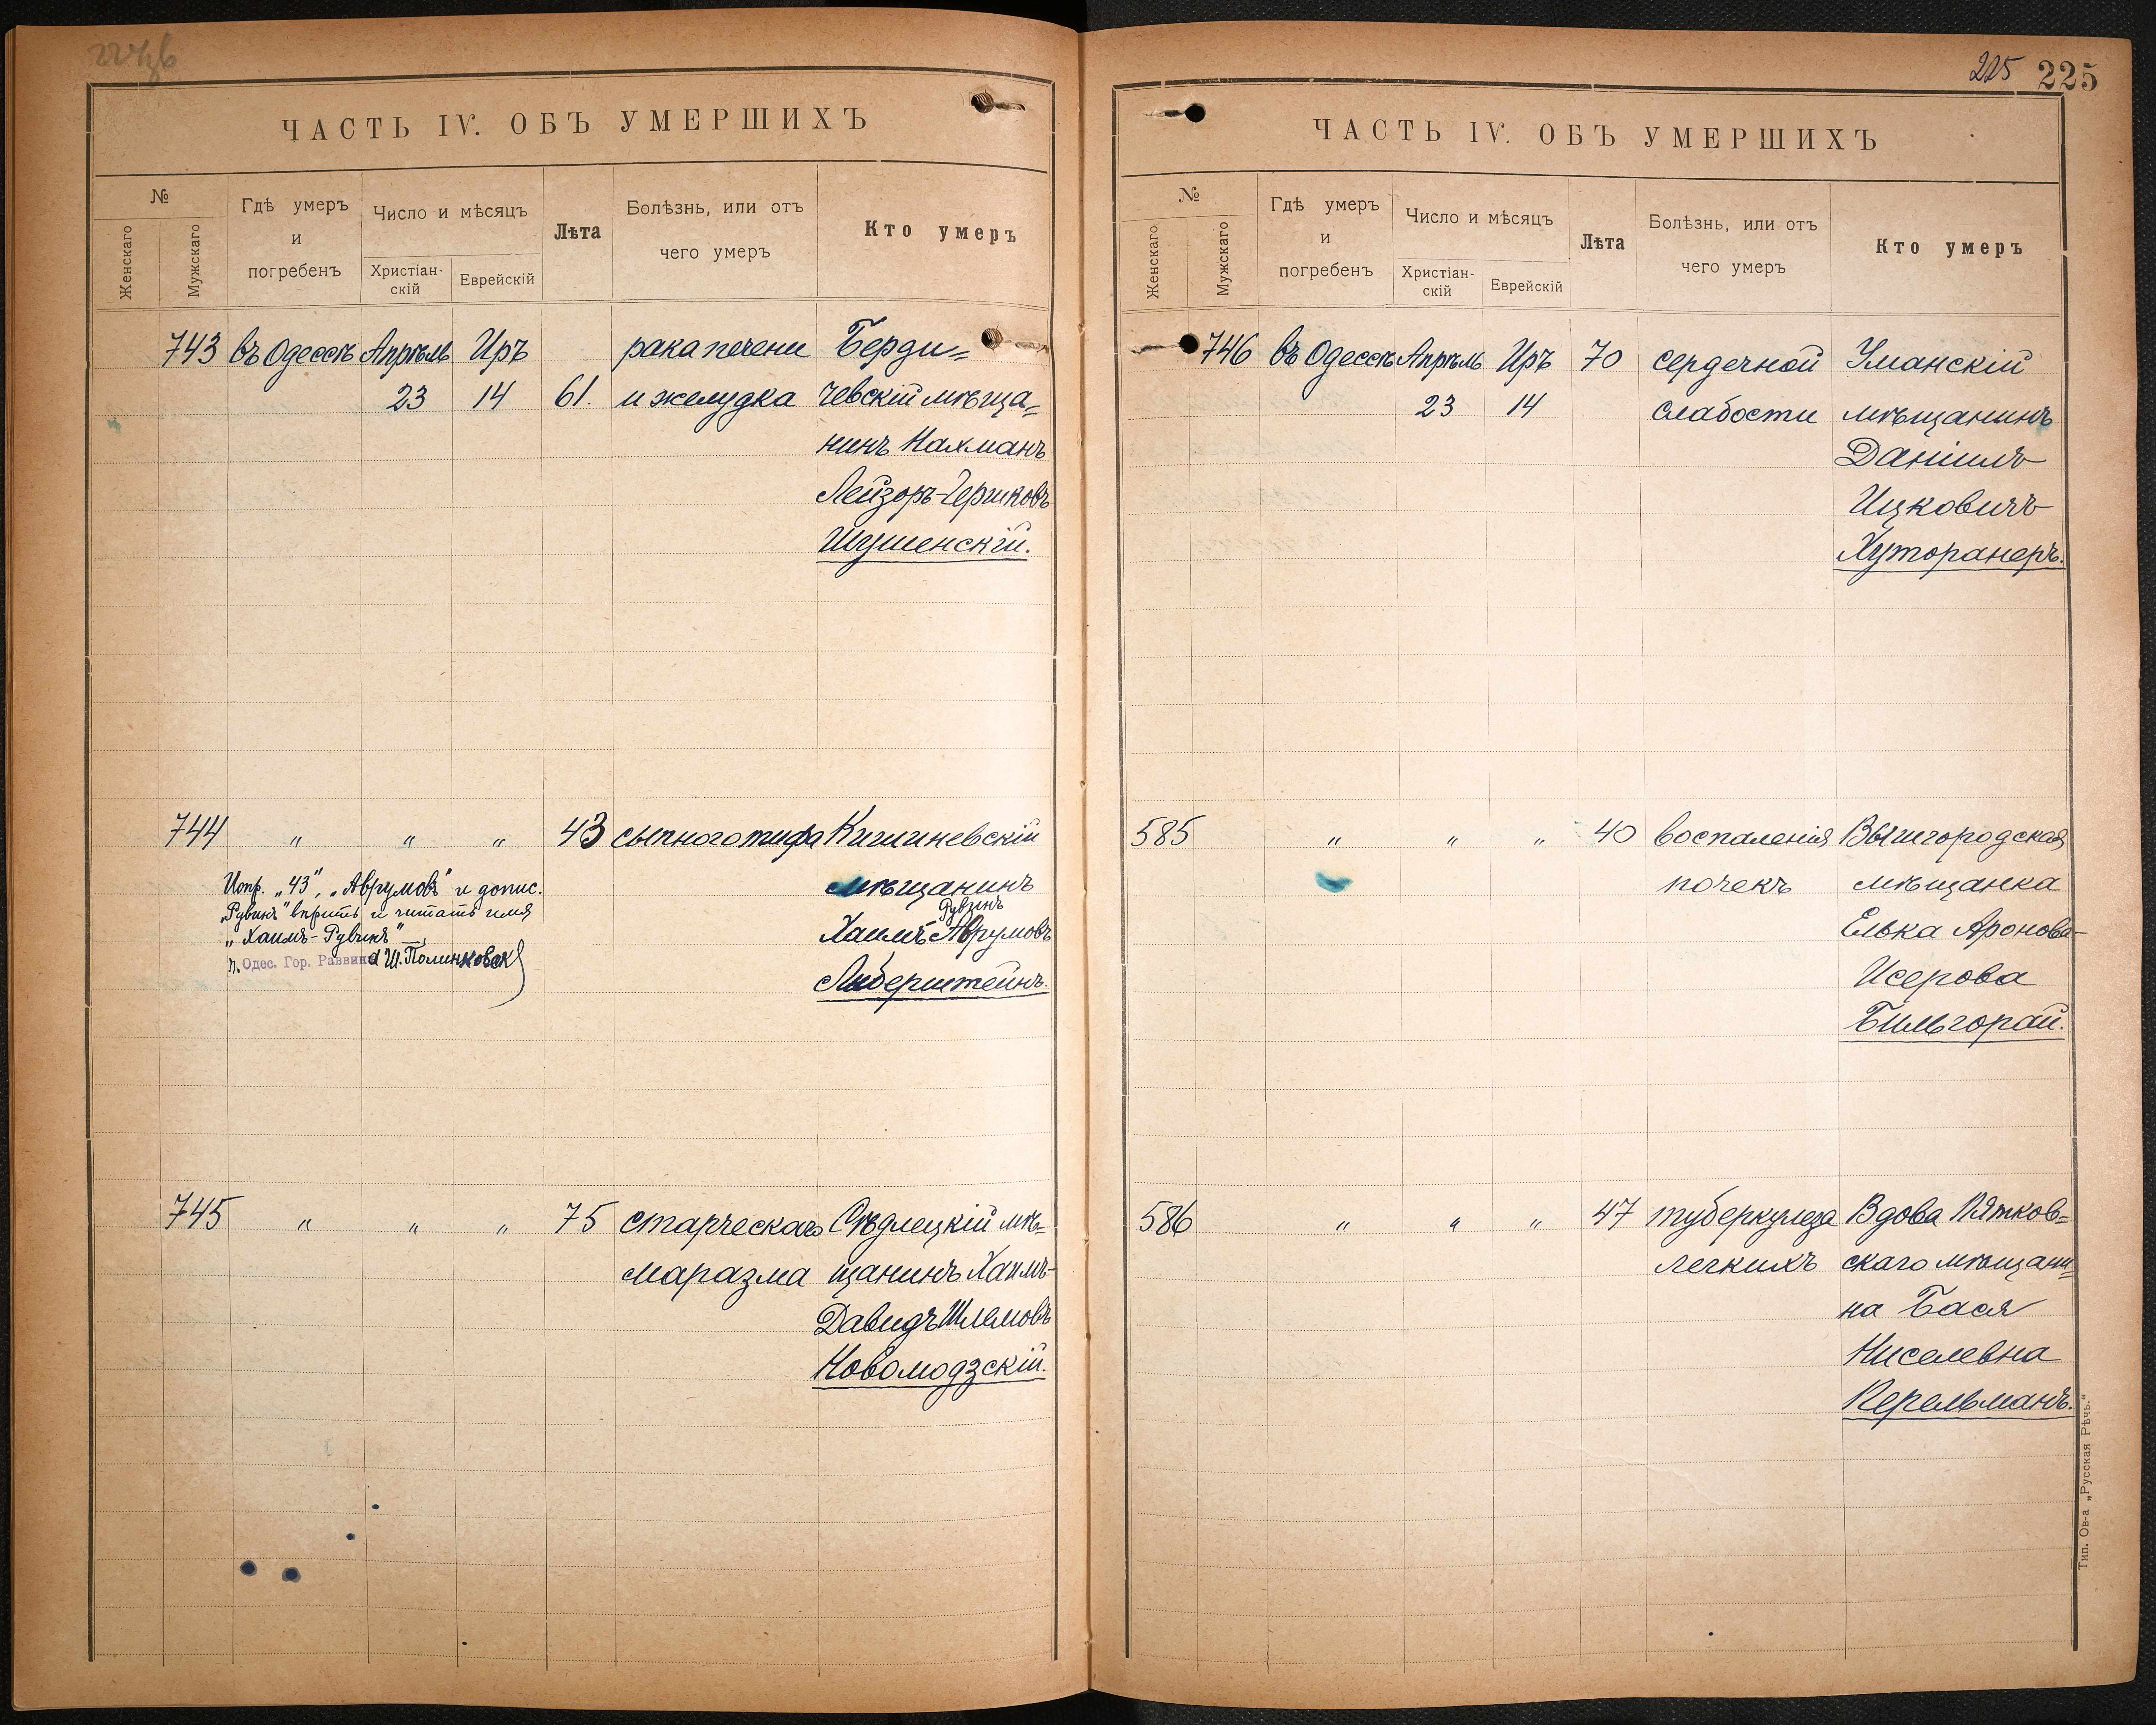 ЧАСТЬ IV. ОБЪ УМЕРШИХЪ
№
Женскаго
Мужскаго
Гдѣ умеръ
и
погребенъ
Число и мѣсяцъ
Христіан-
скій
Еврейскій
Лѣта
Болѣзнь, или отъ
чего умеръ
Кто умеръ
743 въ Одессѣ Апрѣль Иръ рака печени Берди=
23 14 61. и желудка чевскій мѣща=
нинъ Нахманъ
Лейзоръ-Гершковъ
Шушенскій.
744 " " " 43 сыпного тифа Кишиневскій
мѣщанинъ
Рувинъ
Хаимъ Аврумовъ
Либерштейнъ.
Испр. „43", „Аврумовъ" и допис.
„Рувинъ" вѣрить и читать имя
„Хаимъ-Рувинъ" —
п. Одес. Гор. Раввина Ш. Полинковскій
745 " " " 75 старческаго Сѣдлецкій мѣ=
маразма щанинъ Хаимъ-
Давидъ Шлемовъ
Новомодзскій.
225 225
ЧАСТЬ IV. ОБЪ УМЕРШИХЪ
№
Женскаго
Мужскаго
Гдѣ умеръ
и
погребенъ
Число и мѣсяцъ
Христіан-
скій
Еврейскій
Лѣта
Болѣзнь, или отъ
чего умеръ
Кто умеръ
746 въ Одессѣ Апрѣль Иръ 70 сердечной Уманскій
23 14 слабости мѣщанинъ
Даніилъ
Ицковичъ
Хуторанеръ.
585 " " " 40 воспаленія Вышгородская
почекъ мѣщанка
Елька Аронова-
Исерова
Бильгорай.
586 " " " 47 туберкулеза Вдова Пятков=
легкихъ скаго мѣщани=
на Бася
Нисел­евна
Перельманъ.
Тип. Ов-а „Русская Рѣчь."